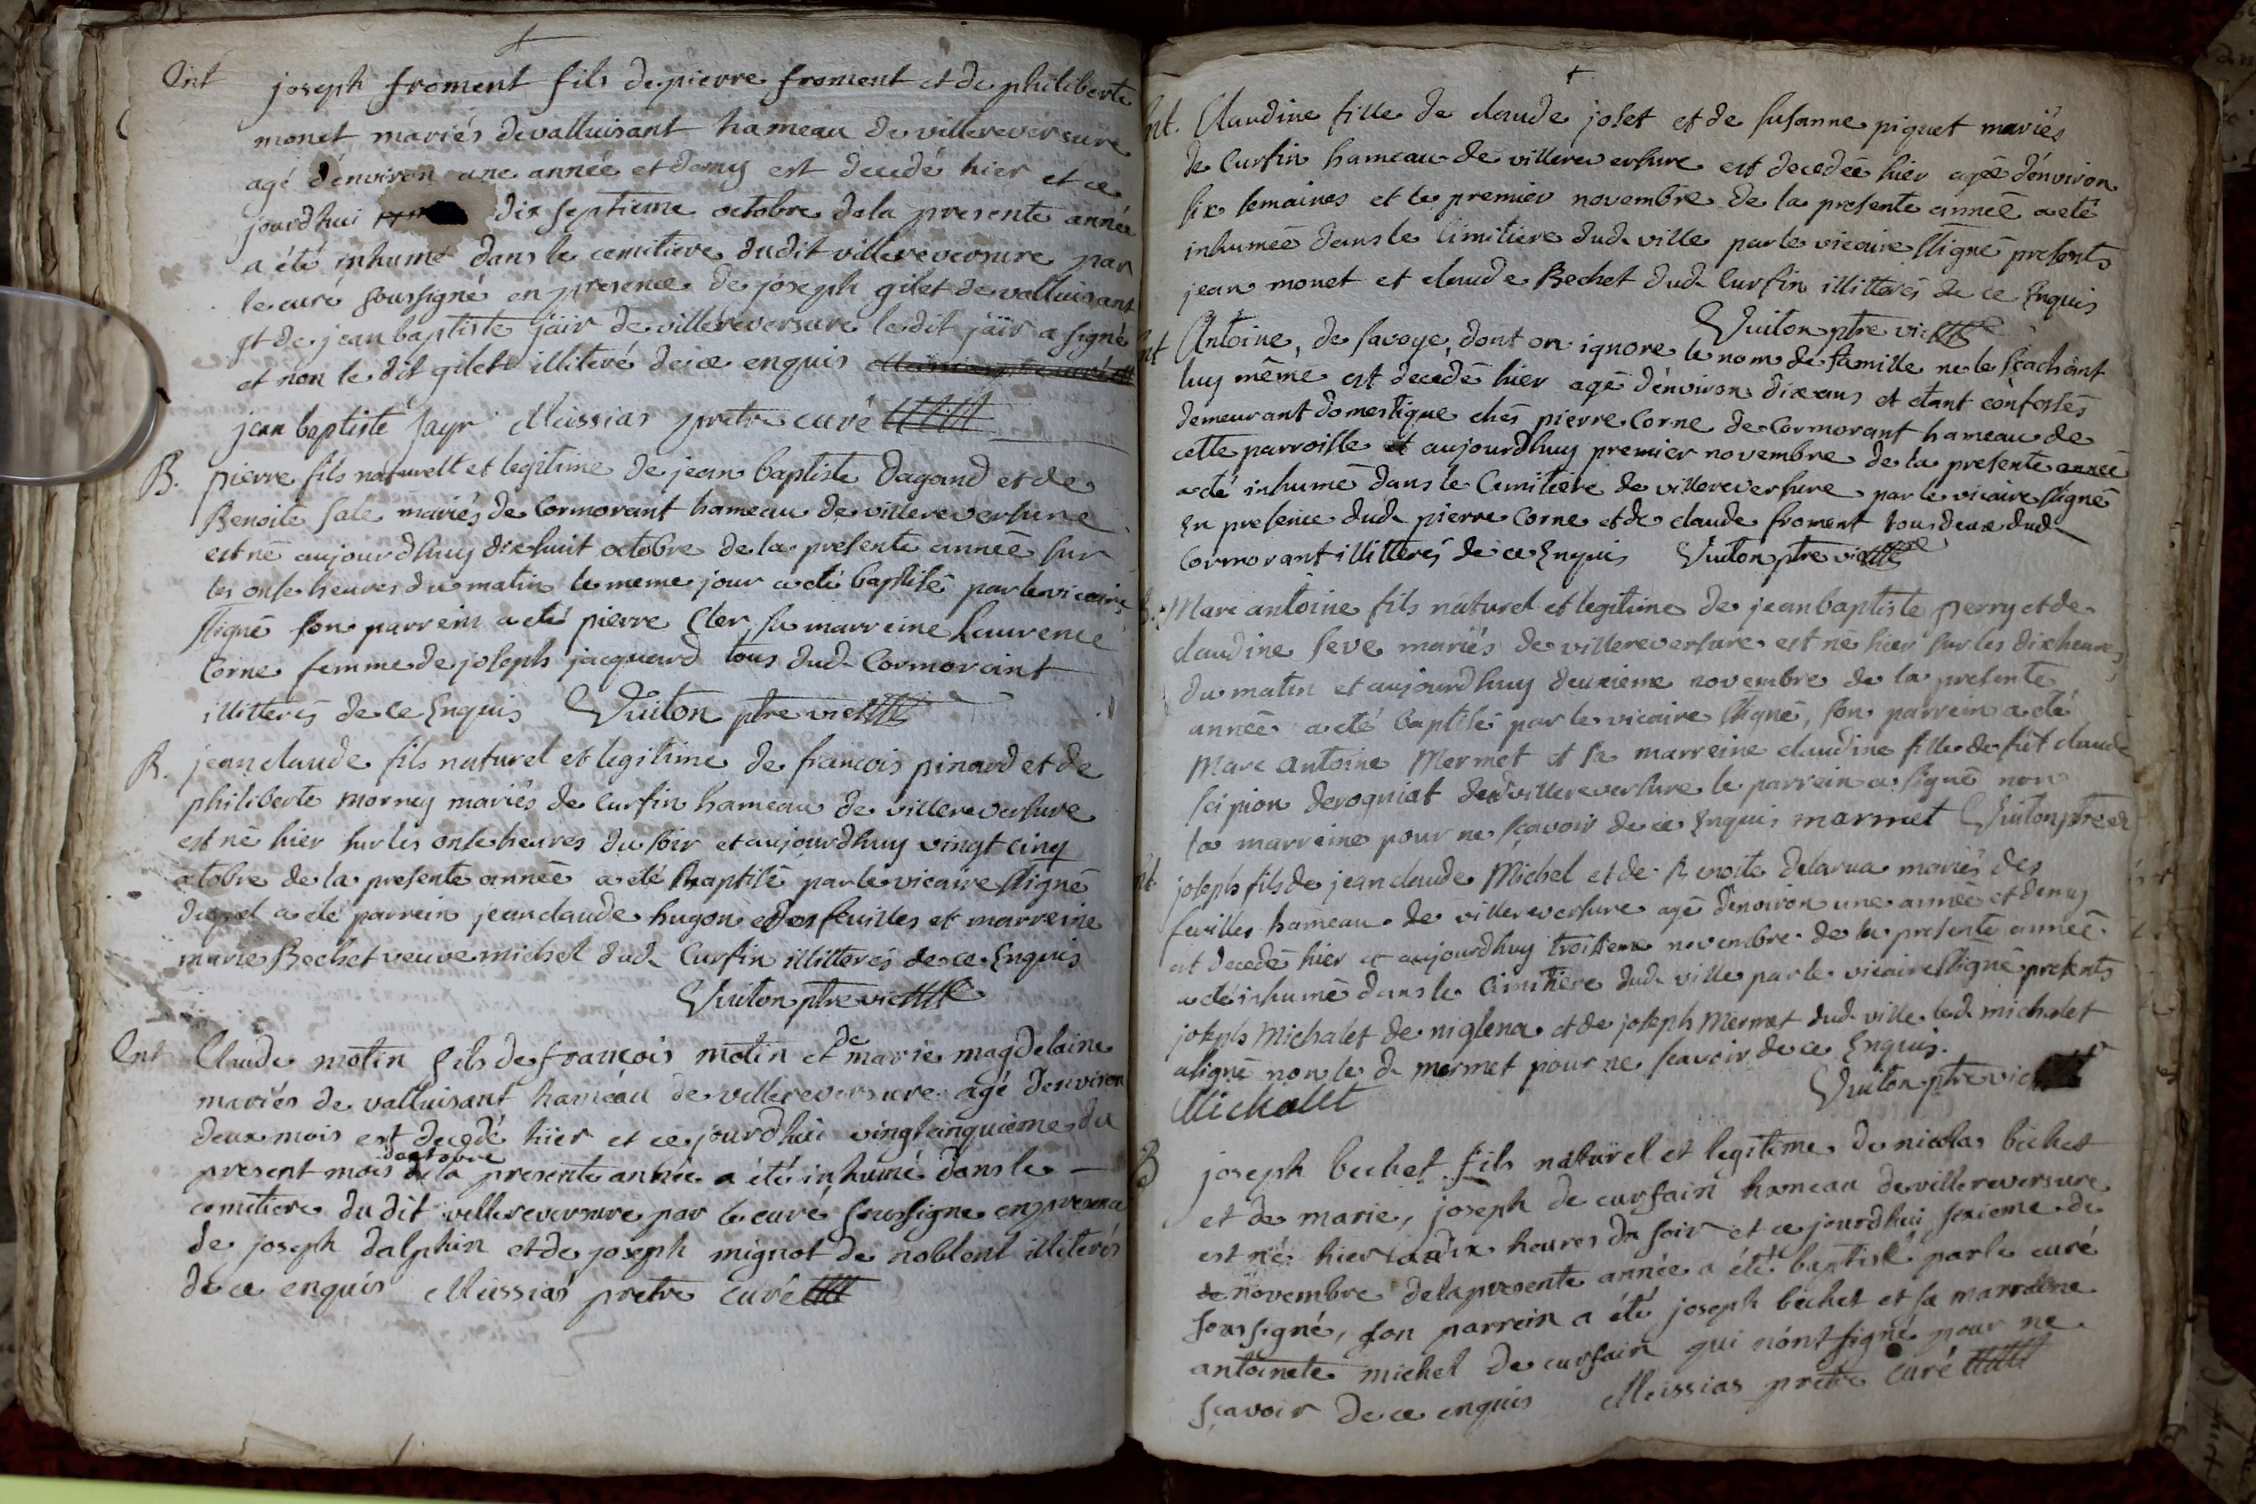 Ent joseph froment fils de pierre froment et de philiberte
monet mariés de valluisant hameau de villereversure
agé d'environ une année et demy est decedé hier et ce
jourdhui dix septieme octobre de la presente année
a été inhumé dans le cemitiere dudit villereversure par
le curé soussigné en presence de joseph gilet de valluisant
et de jean baptiste jaïr de villereversure le dit jaïr a signé
et non le dit gilet illiteré de ce enquis
jean baptiste Jayr Meissias pretre curé
B. pierre fils naturell et legitime de jean baptiste Dagand et de
Benoite sale mariés de Cormorant hameau de villereversure
est né aujourdhuy dixhuit octobre de la presente année sur
les onse heures du matin le meme jour a eté baptisé par le vicaire
ssigné son parrein a eté pierre Cler, sa marreine Laurence
Corne femme de joseph jacquard tous dud. Cormorant
illitterés de ce Enquis Vuiton ptre vic
B. jean claude fils naturel et legitime de francois pinard et de
philiberte Morney mariés de Curfin hameau de villereversure
est né hier sur les onse heures du soir et aujourdhuy vingt cinq
octobre de la presente année a eté Baptisé par le vicaire ssigné
duquel a eté parrein jean claude hugon des feuilles et marreine
marie Bechet veuve michel dud. Curfin illitterés de ce Enquis
Vuiton ptre vic
Ent Claude motin fils de francois motin et de marie magdelaine
mariés de valluisant hameau de villereversure agé d'environ
deux mois est decedé hier et ce jourdhui vingtcinquieme du
present mois doctobre de la presente année a été inhumé dans le
cemitiere du dit villereversure par le curé soussigné en presence
de joseph dalphin et de joseph mignot de noblent illiterés
de ce enquis Meissias pretre curé
Ent. Claudine fille de claude joset et de susanne piquet mariés
de Curfin hameau de villereversure est decedée hier agée d'environ
six semaines et le premier novembre de la presente année a eté
inhumée dans le Cimitiere dud. ville par le vicaire ssigné presents
jean monet et claude Bechet dud. Curfin illitterés de ce Enquis
Vuiton ptre vic
Ent Antoine, de savoye, dont on ignore le nom de famille ne le sçachant
luy même est decedé hier agé d'environ dix ans et etant confessés
demeurant domestique chés pierre Corne de Cormorant hameau de
cette parroisse et aujourdhuy premier novembre de la presente année
a eté inhumé dans le Cimitiere de villereversure par le vicaire ssigné
En presence dud. pierre Corne et de claude froment tous deux dud.
Cormorant illitterés de ce Enquis Vuiton ptre vic
B. Marc antoine fils naturel et legitime de jean baptiste perry et de
claudine seve mariés de villereversure est né hier sur les dix heures
du matin et aujourdhuy deuxieme novembre de la presente
année a eté baptisé par le vicaire ssigné, son parrein a eté
Marc Antoine Mermet et sa marreine claudine fille de fut claude
scipion derogniat dud. villereversure le parrein a signé non
la marreine pour ne sçavoir de ce Enquis marmet Vuiton ptre
Ent joseph fils de jean claude Michel et de Benoite delarua mariés des
feuilles hameau de villereversure agé d'environ une année et demy
est decedé hier et aujourdhuy troisieme novembre de la presente année
a eté inhumé dans le Cimitiere dud. ville par le vicaire ssigné presents
joseph Michalet de niglena et de joseph Mermet dud. ville led. michalet
a signé non le d. mermet pour ne sçavoir de ce Enquis.
Vuiton ptre vic
Michalet
B joseph bechet fils naturel et legitime de nicolas bechet
et de marie, joseph de curfain hameau de villereversure
est né hier a dix heures du soir et ce jourdhui sixieme de
novembre de la presente année a été baptisé par le curé
soussigné, son parrein a été joseph bechet et sa marreine
antoinete michel de curfain qui n'ont signé pour ne
sçavoir de ce enquis Meissias pretre curé